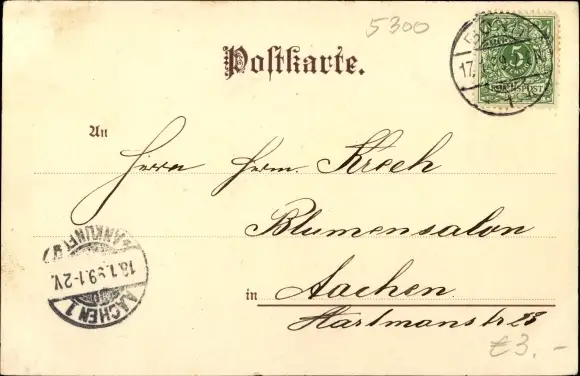 5300
Postkarte.
5
REICHSPOST
17.
An
Herrn Herm. Kroch
Blumensalon
in Aachen
Hartmanstr 23
ANKUNFT
18.1.99.1-2V.
AACHEN 1
€3.-